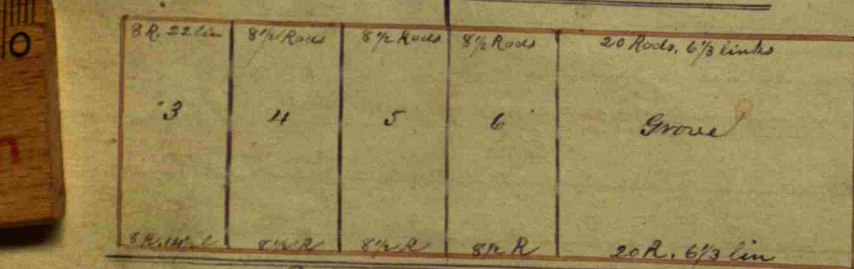 8 R. 22 lin 8 1/2 Rods 8 1/2 Rods 8 1/2 Rods 20 Rods. 6 1/3 links
3 4 5 6 Grove
8 R. 8 1/2 R 8 1/2 R 8 1/2 R 20 R. 6 1/3 lin